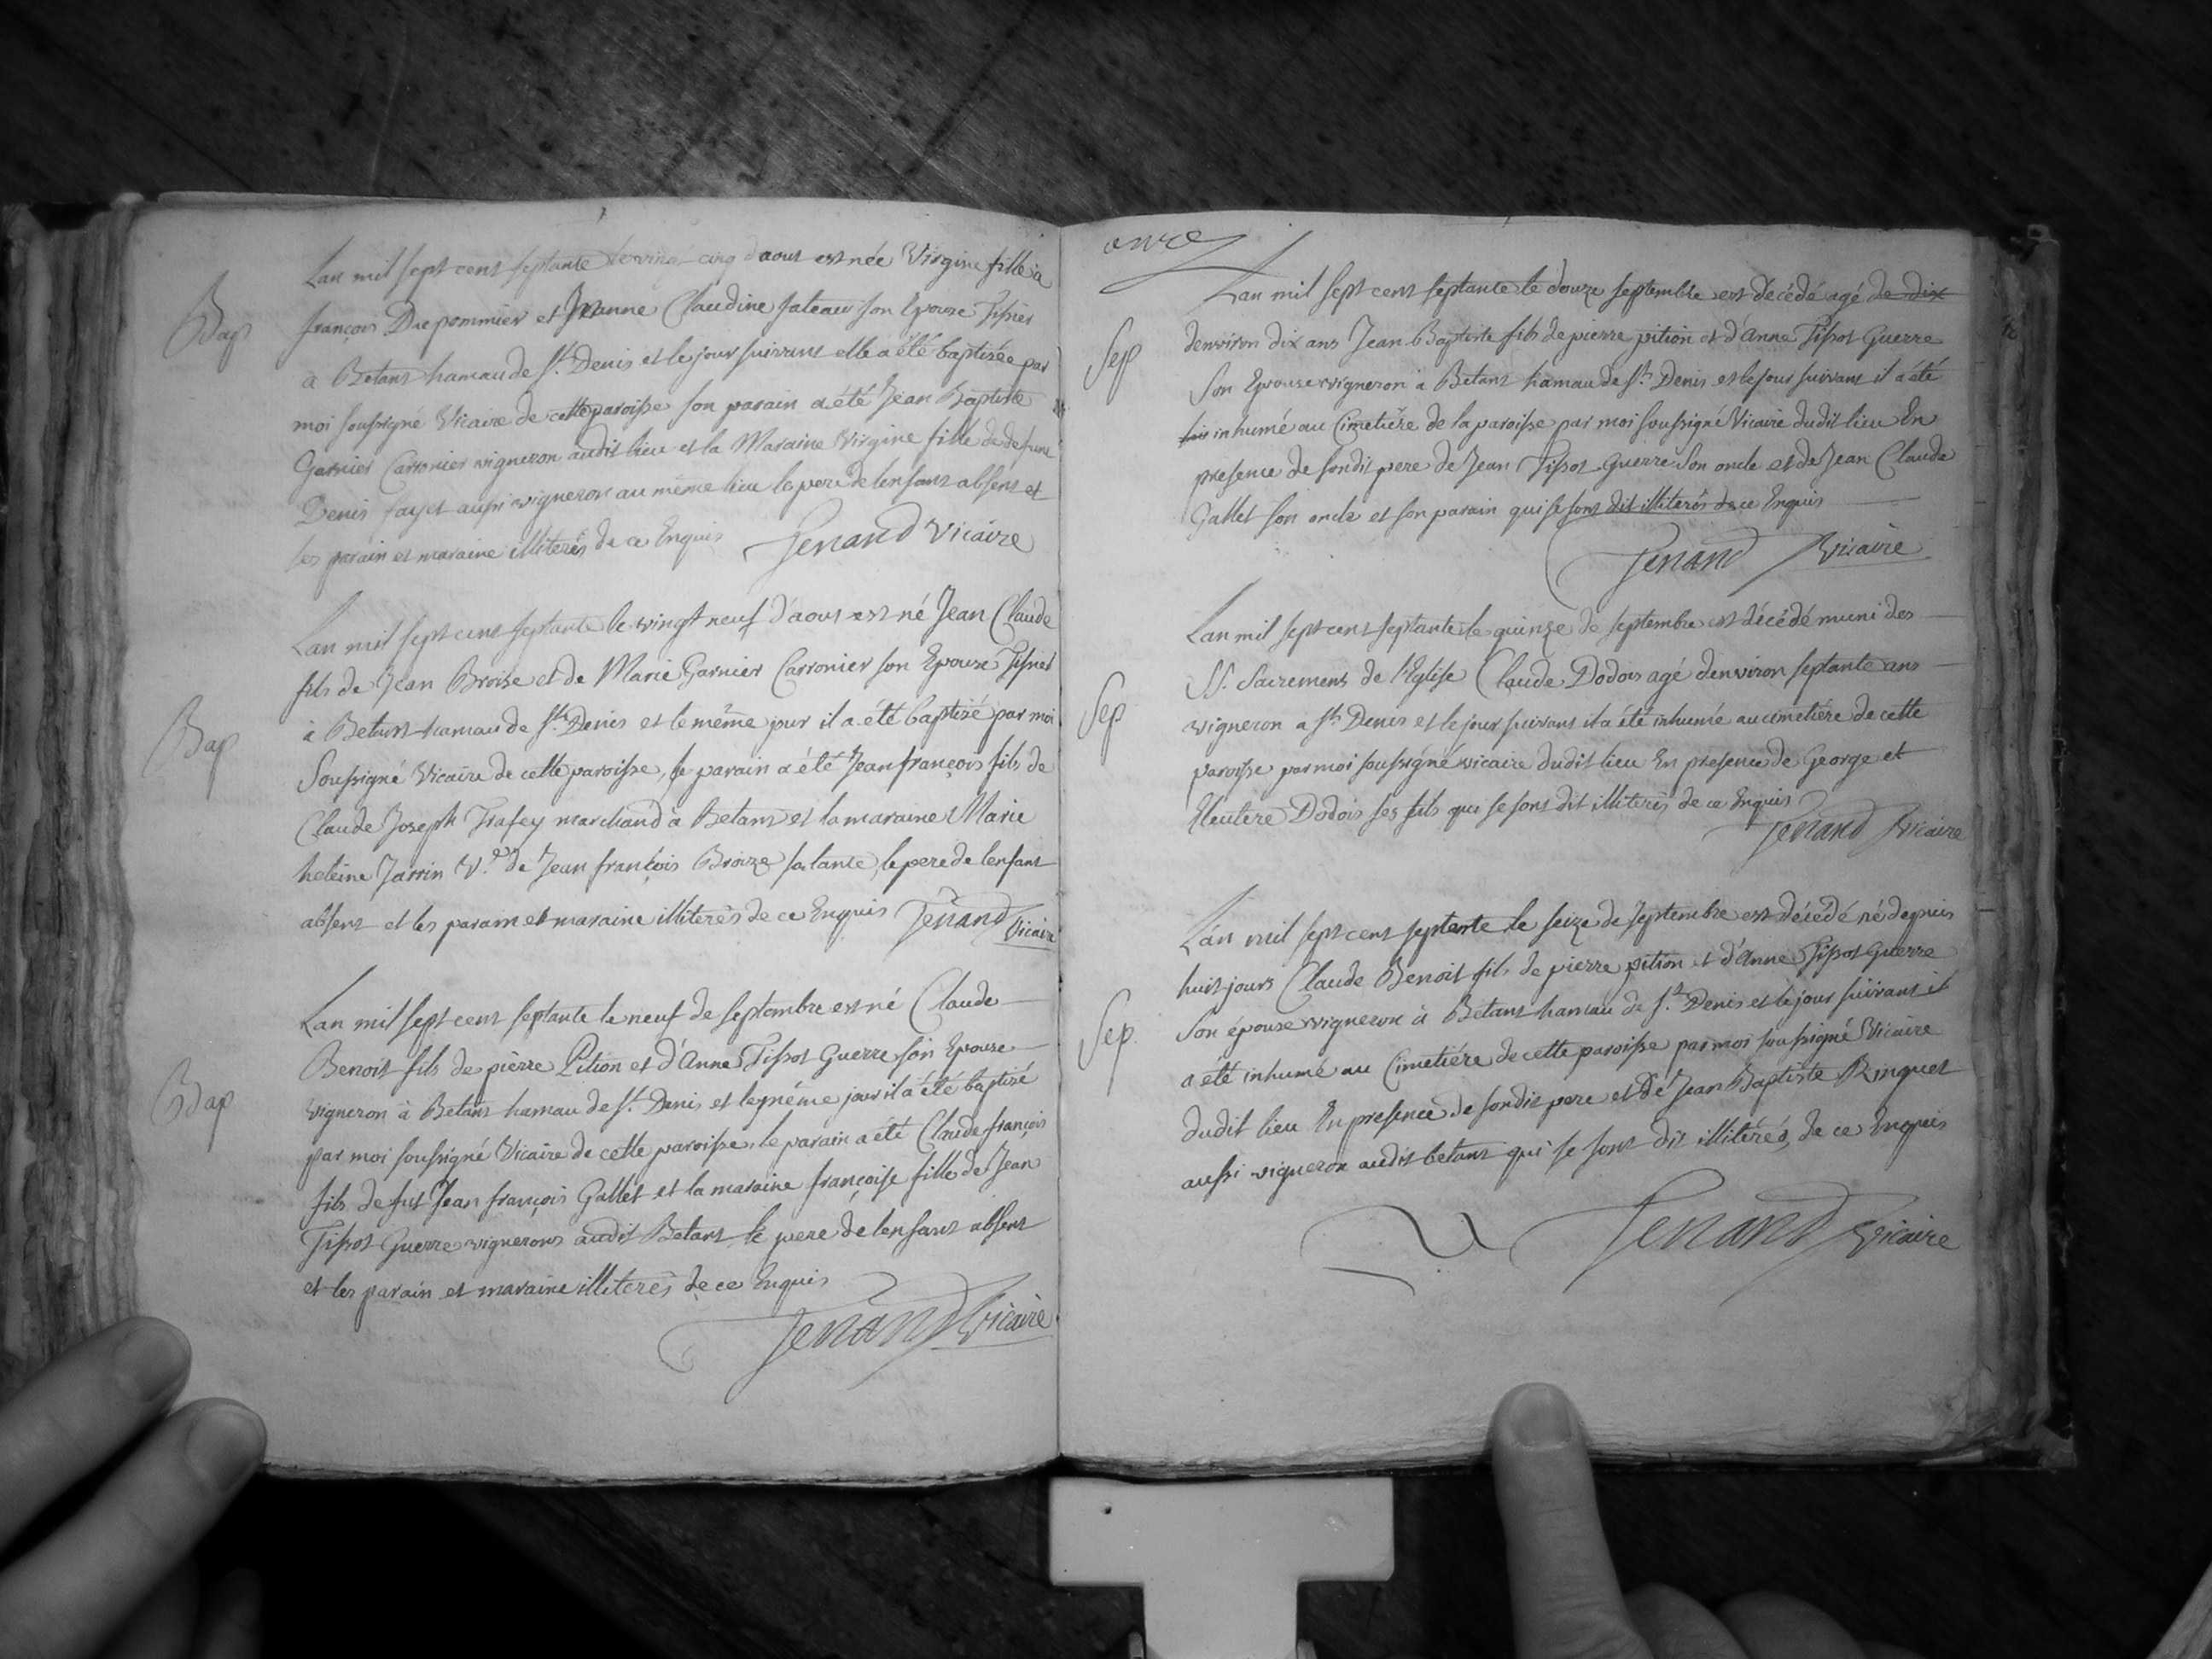 Bap
Lan mil sept cent septante le vingt cinq daout est née Virgine fille à
françois Duepommier et Jeanne Claudine Sateau son Epouze Tissier
à Betant hamau de St. Denis et le jour suivant elle a été baptisée par
moi soussigné Vicaire de cette paroisse son parain a été Jean Baptiste
Garnier Carronier vigneron audit lieu et la Maraine Virgine fille de defunt
Denis fayet aussi vigneron au même lieu le pere de lenfant absent et
les parain et maraine illiterés de ce Enquis Jenand Vicaire
Bap
Lan mil sept cent septante le vingt neuf d'aout est né Jean Claude
fils de Jean Broise et de Marie Garnier Carronier son Epouze Tissier
à Betant hamau de St. Denis et le même jour il a été baptizé par moi
Soussigné Vicaire de cette paroisse, le parain a été Jean françois fils de
Claude Joseph Trafey marchand à Betant et la maraine Marie
heleine Jarrin Ve. de Jean françois Broize sa tante, le pere de lenfant
absent et les parain et maraine illiterés de ce Enquis Jenand Vicaire
Bap
Lan mil sept cent septante le neuf de septembre est né Claude
Benoit fils de pierre Pition et d'Anne Tissot Guerre son Epouse
vigneron à Betant hamau de St. Denis et le même jour il a été baptizé
par moi soussigné Vicaire de cette paroisse, le parain a été Claude françois
fils de fut Jean françois Gallet et la maraine françoise fille de Jean
Tissot Guerre vignerons audit Betant le pere de lenfant absent
et les parain et maraine illiterés de ce Enquis
Jenand Vicaire
onze
Sep
Lan mil sept cent septante le douze septembre est décédé agé de dix
denviron dix ans Jean Baptiste fils de pierre pition et d'Anne Tissot Guerre
Son Epouse vigneron à Betant hamau de St. Denis et le jour suivant il a été
inhumé au Cimetière de la paroisse par moi soussigné Vicaire dudit lieu En
presence de sondit pere de Jean Tissot Guerre Son oncle et de Jean Claude
Gallet son oncle et son parain qui se sont dit illiterés de ce Enquis
Jenand Vicaire
Sep
Lan mil sept cent septante le quinze de septembre est décédé muni des
SS. Sacremens de l'Eglise Claude Dodois agé denviron septante ans
vigneron a St. Denis et le jour suivant il a été inhumé au cimetière de cette
paroisse par moi soussigné vicaire dudit lieu En presence de George et
Eleutere Dodois ses fils qui se sont dit illiterés de ce Enquis
Jenand Vicaire
Sep.
Lan mil sept cent septante le seize de septembre est décédé né depuis
huit jours Claude Benoit fils de pierre pition et d'Anne Tissot Guerre
Son épouse vigneron à Betant hamau de St. Denis et le jour suivant il
a été inhumé au Cimetiére de cette paroisse par moi soussigné Vicaire
dudit lieu En presence de sondit pere et de Jean Baptiste Ringuet
aussi vigneron audit betant qui se sont dit illitérés, de ce Enquis
Jenand Vicaire